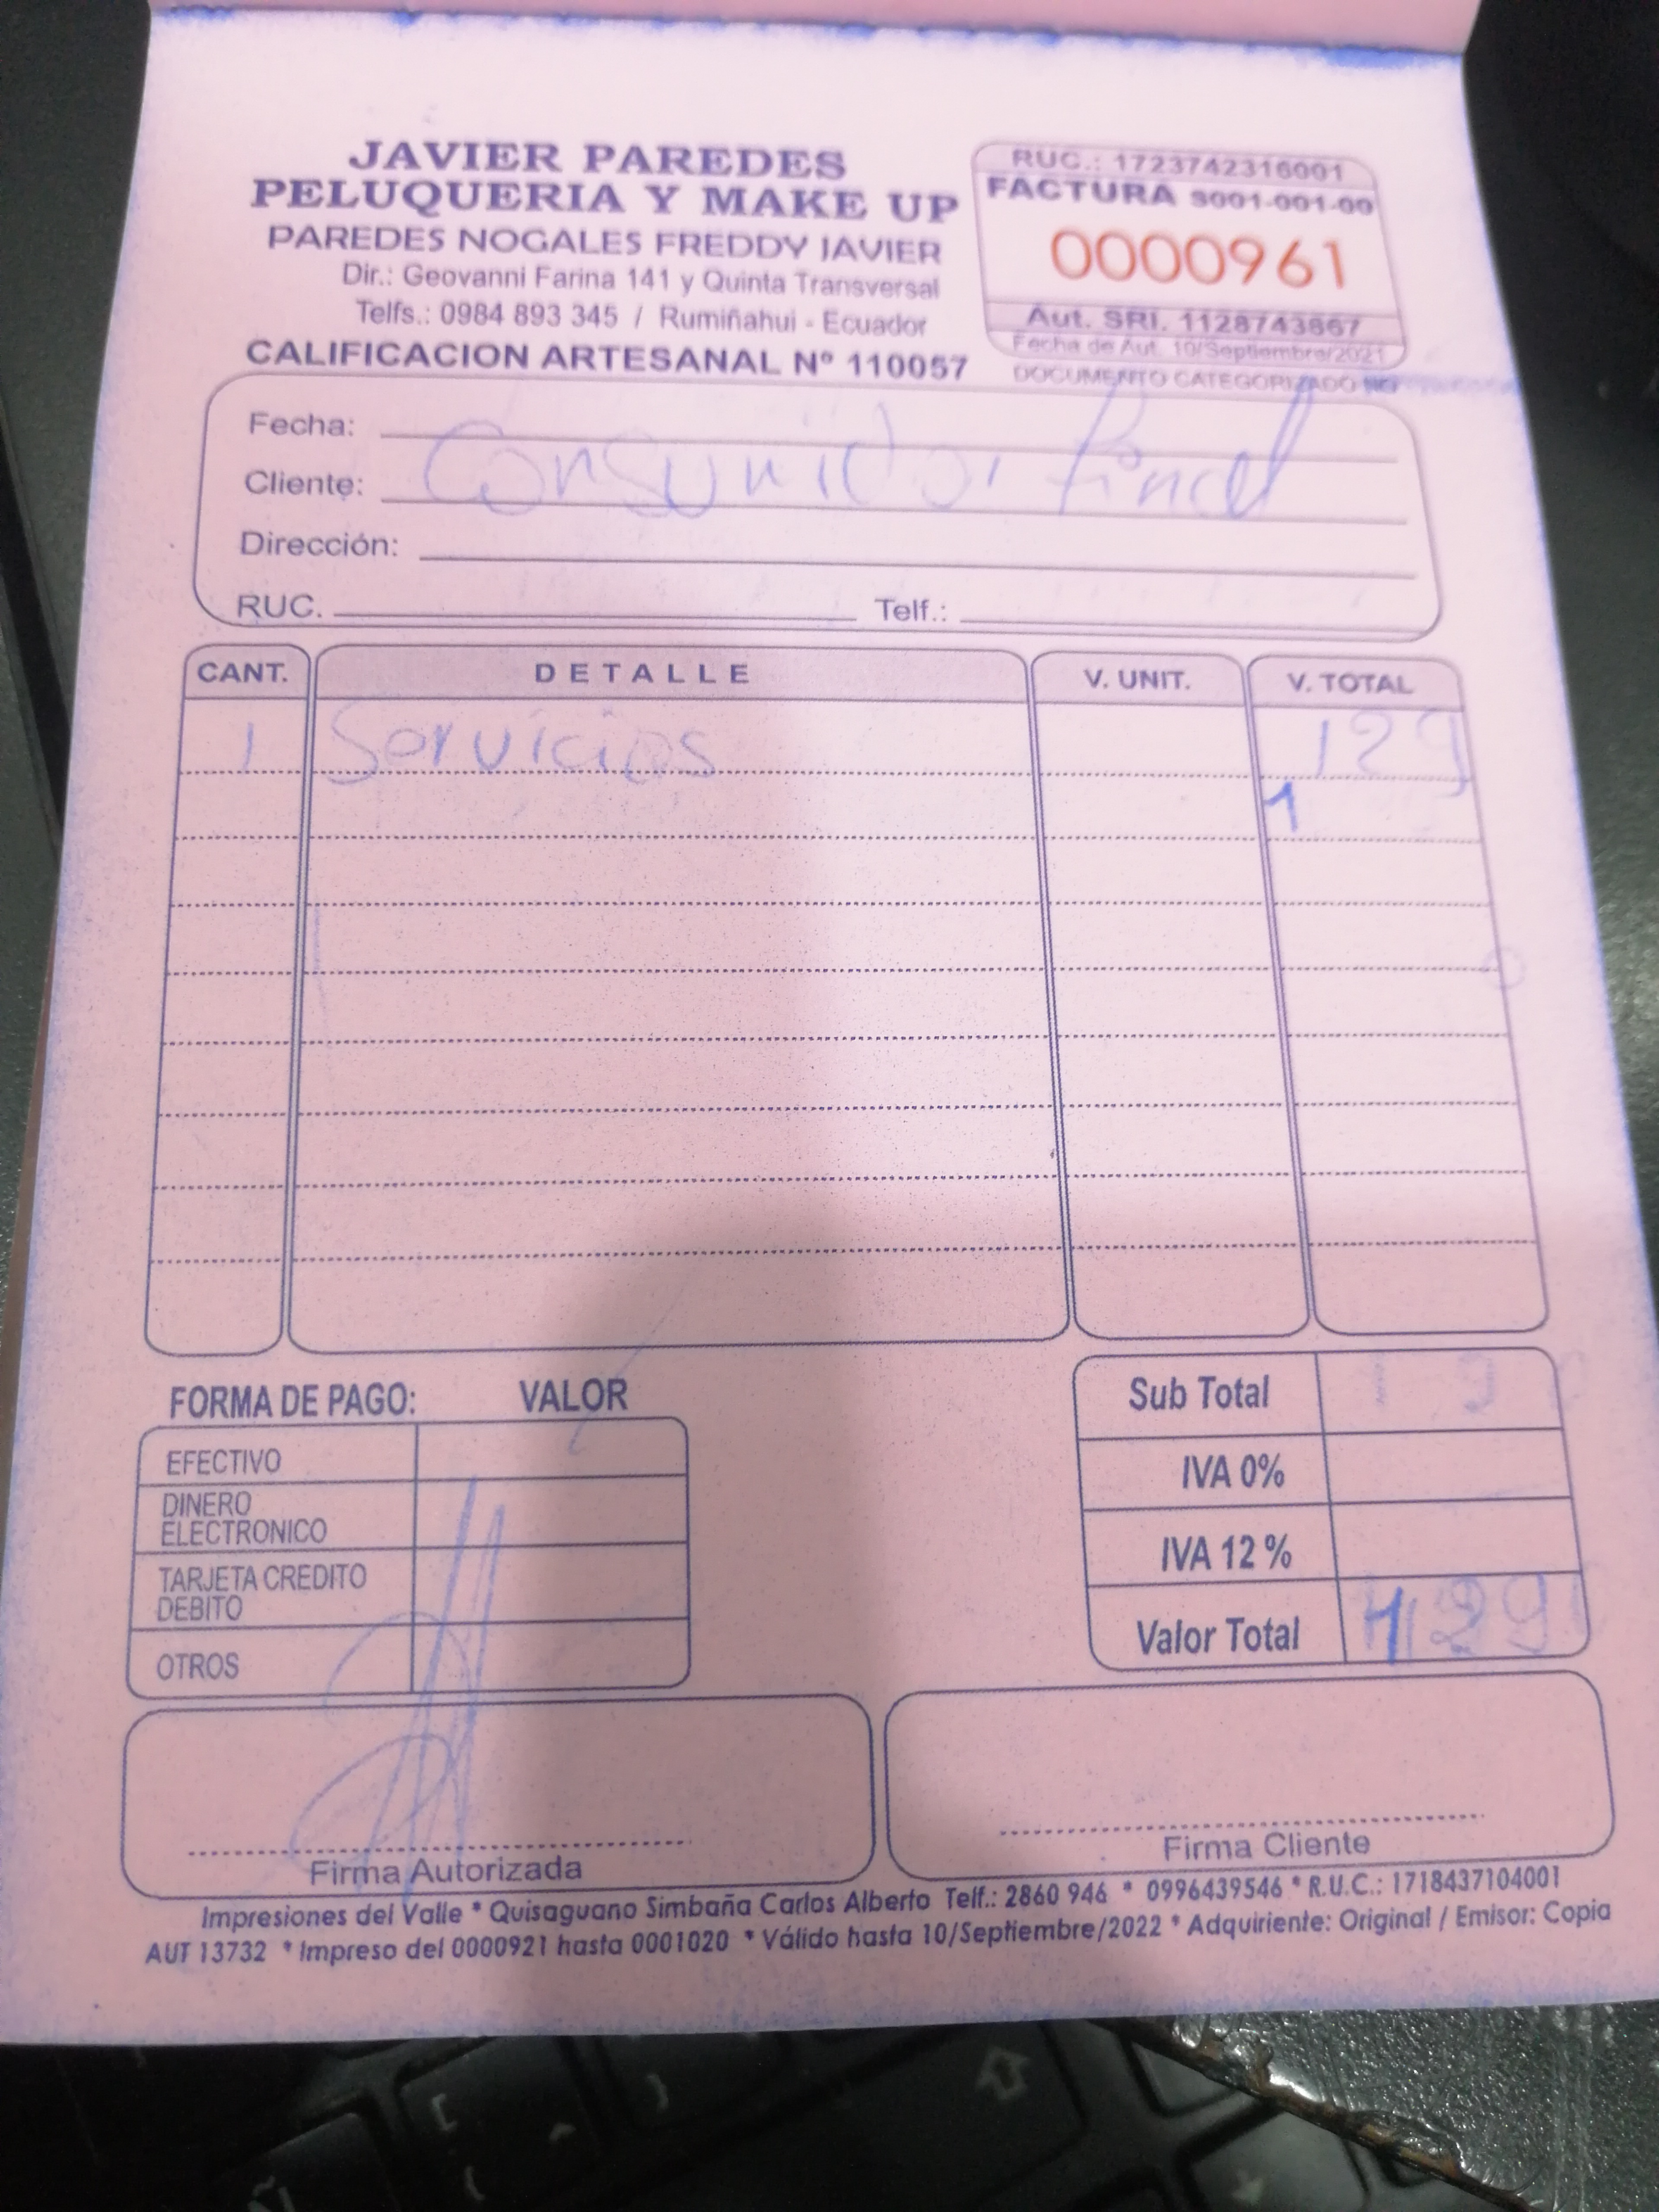 JAVIER PAREDES
PELUQUERIA Y MAKE UP
PAREDES NOGALES FREDDY JAVIER
Dir.: Geovanni Farina 141 y Quinta Transversal
Telfs.: 0984 893 345 / Rumiñahui - Ecuador
CALIFICACION ARTESANAL Nº 110057
RUC.: 1723742316001
FACTURA S001-001-00
0000961
Aut. SRI. 1128743867
Fecha de Aut. 10/Septiembre/2021
DOCUMENTO CATEGORIZADO NO
Fecha:
Cliente: Consumidor final
Dirección:
RUC. Telf.:
CANT. DETALLE V. UNIT. V. TOTAL
1 Servicios 129
1
FORMA DE PAGO: VALOR
EFECTIVO
DINERO
ELECTRONICO
TARJETA CREDITO
DEBITO
OTROS
Sub Total
IVA 0%
IVA 12 %
Valor Total
Firma Autorizada
Firma Cliente
Impresiones del Valle * Quisaguano Simbaña Carlos Alberto Telf.: 2860 946 * 0996439546 * R.U.C.: 1718437104001
AUT 13732 * Impreso del 0000921 hasta 0001020 * Válido hasta 10/Septiembre/2022 * Adquiriente: Original / Emisor: Copia